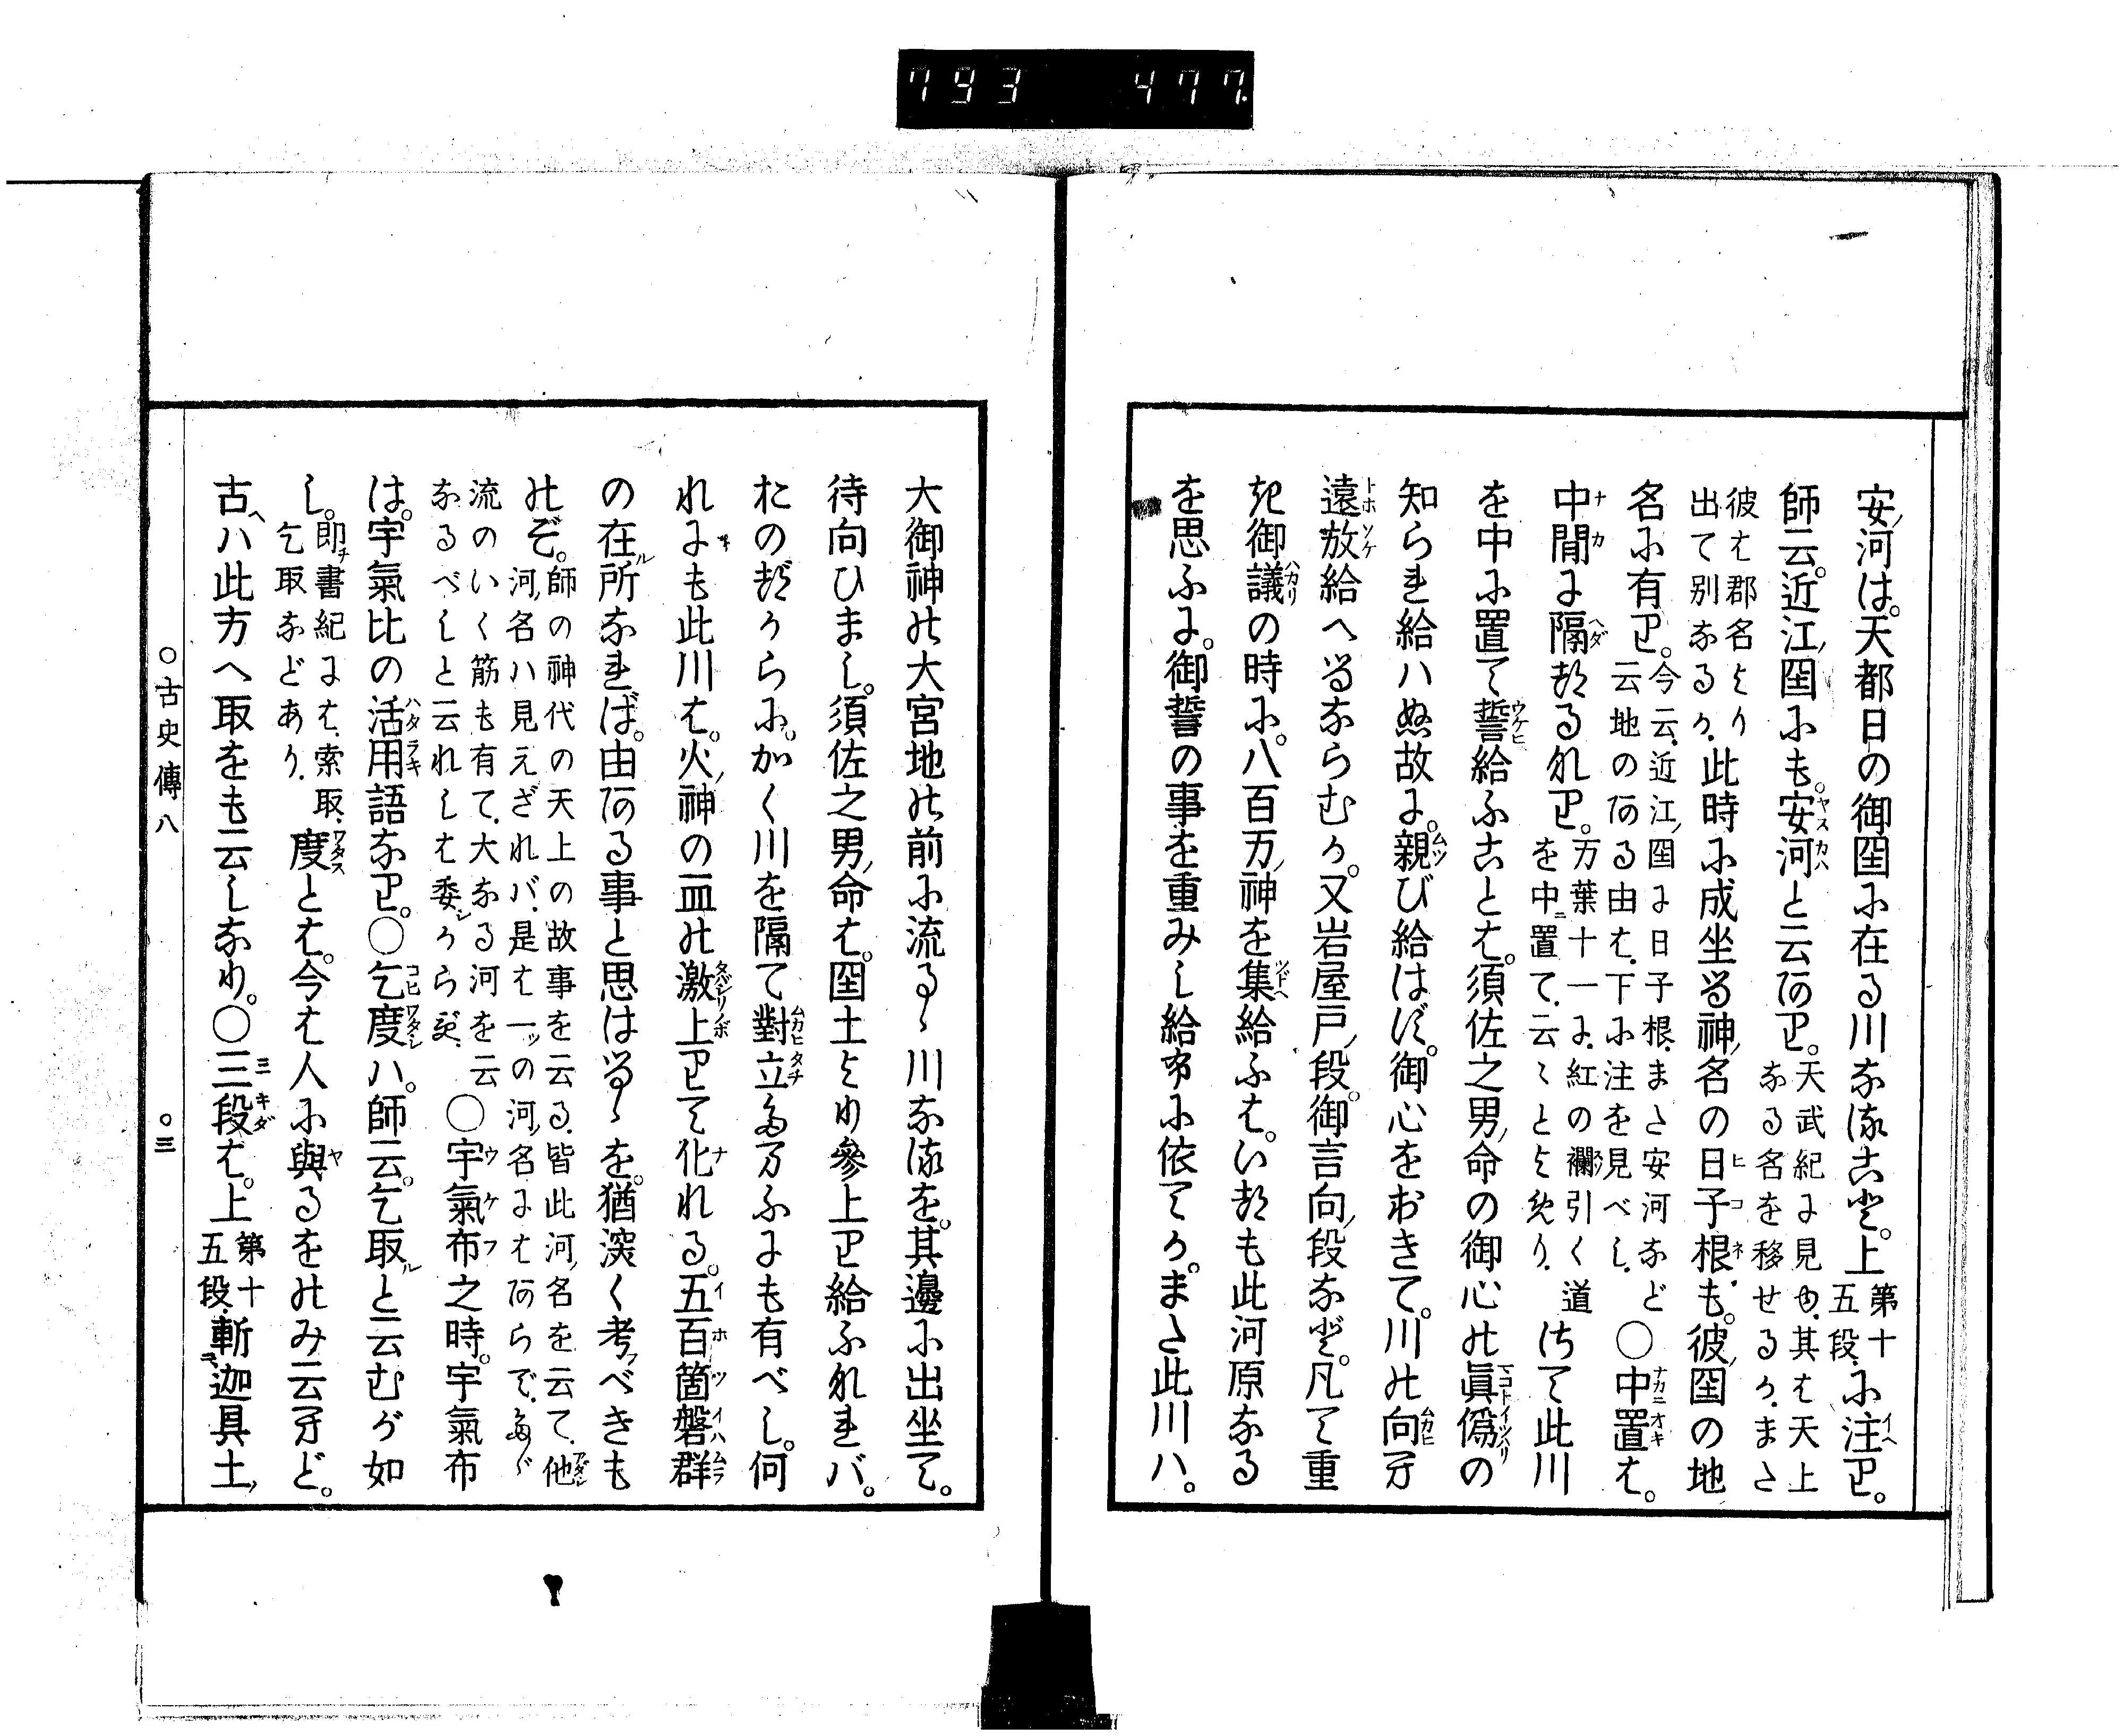 793 477
安ノ河は。天都日の御国に在る川なること。上第十五段に注り。
師云。近江ノ国にも。安河と云あり。天武紀に見ゆ。其は天上なる名を移せるか。また
彼は郡名より出て別なるか。此時に成坐る神ノ名の日子根も。彼ノ国の地
名に有り。今云。近江ノ国に日子根。また安河など云地のある由は。下に注を見べし。〇中置は。
中間に隔たるなり。万葉十一に。紅の襴引く道を中ニ置て。云々とよめり。さて此川
を中に置て誓給ふことは。須佐之男ノ命の御心の眞僞の
知られ給ハぬ故に。親び給はず。御心をおきて。川の向ひ
遠放給へるならむか。又岩屋戸ノ段。御言向ノ段など。凡て重
き御議の時に。八百万ノ神を集給ふは。いつも此河原なる
を思ふに。御誓の事を重みし給ふに依てか。また此川ハ。
大御神の大宮地の前に流るゝ川なるを。其邊に出坐て。
待向ひまし。須佐之男ノ命は。国土より參上り給ふなれバ。
おのづからに。かく川を隔て對立たまふにも有べし。何
れにも此川は。火ノ神の血の激上りて化れる。五百箇磐群
の在ル所なれば。由ある事と思はるゝを。猶深く考フべきも
のぞ。師の神代の天上の故事を云る。皆此河ノ名を云て。他河ノ名ハ見えざれバ。是は一ツの河ノ名にはあらで。たゞ
流のいく筋も有て。大なる河を云なるべしと云れしは委シからず。〇宇氣布之時。宇氣布
は。宇氣比の活用語なり。〇乞度ハ。師云。乞取ルと云むが如
し。即チ書紀には。索取。乞取などあり。度とは。今は人に與るをのみ云へど。
古ヘハ此方へ取をも云しなり。〇三段は。上第十五段。斬迦具土ノ
〇古史傳八 〇三